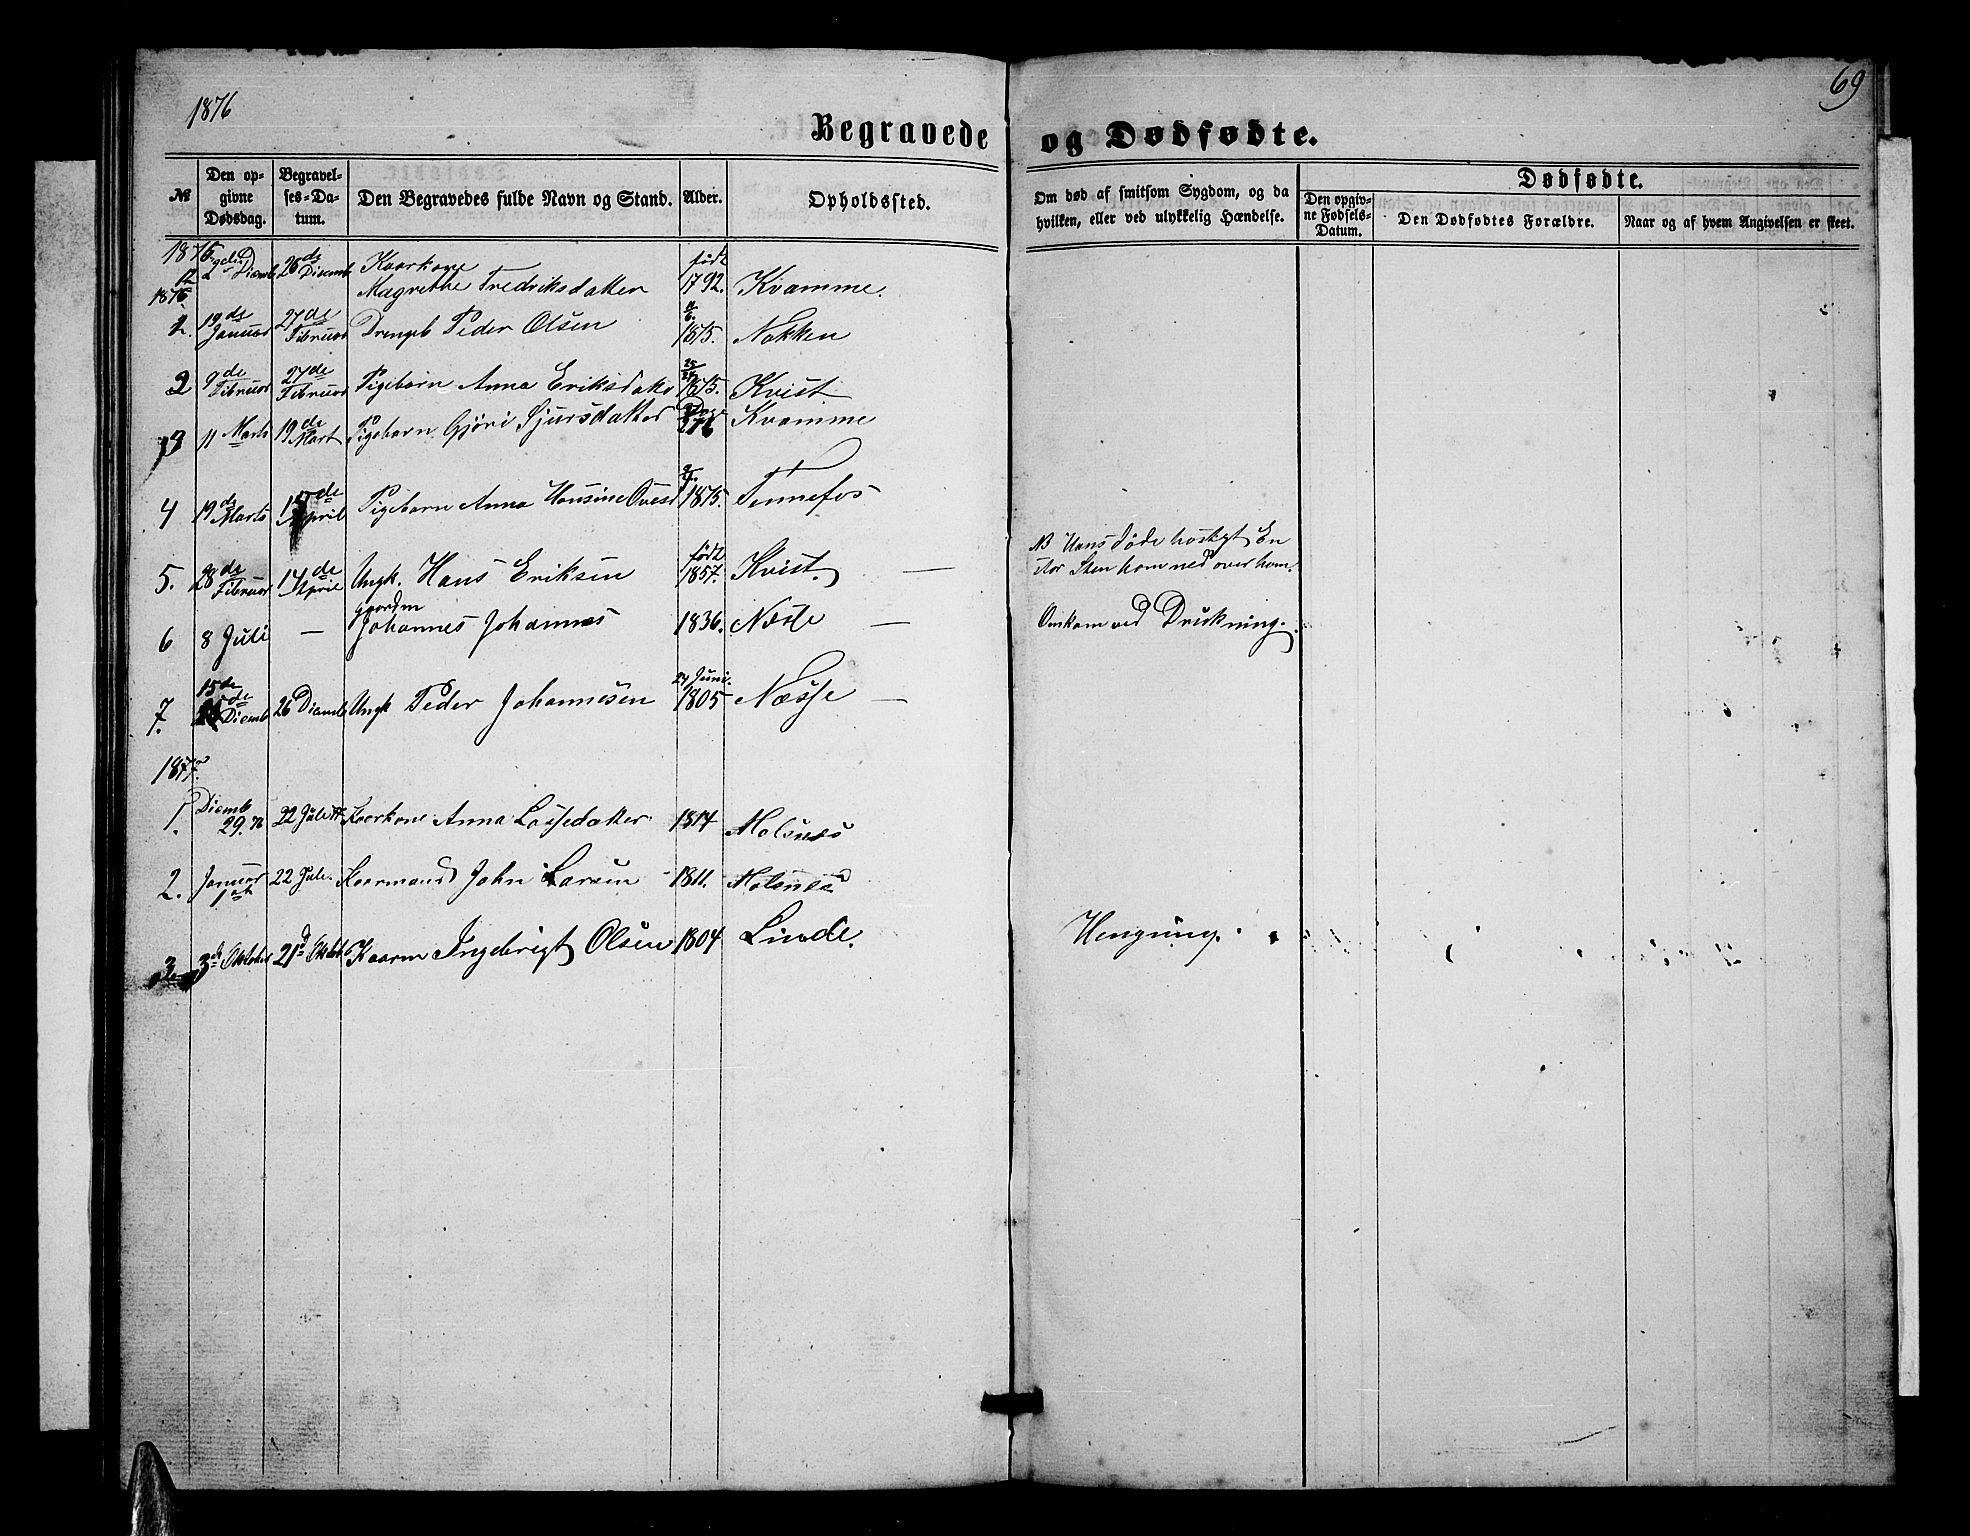 1876
69
Begravede og Dødfødte.
№
Den op-
givne
Dødsdag.
Begravel-
ses-Da-
tum.
Den Begravedes fulde Navn og Stand.
Alder.
Opholdssted.
Om død af smitsom Sygdom, og da
hvilken, eller ved ulykkelig Hændelse.
Dødfødte.
Den opgiv-
ne Fødsels-
Datum.
Den Dødfødtes Forældre.
Naar og af hvem Angivelsen er skeet.
1875
2 Dicemb 26de Dicemb Kaarkone født
12 Magrethe Fredriksdatter 1792. Kvamme.
1876
19de Januar 27de Februar Drengb Peder Olsen 1875. Nakken
2 9de Februar 27de Februar Pigebarn Anna Eriksdatr 1875. Kvist
3 11 Marts 19de Mart Pigebarn Gjøri Sjursdatter Kvamme
4 19de Marts 15de April Pigebarn Anna Hansine Ovesd 1875. Tennefos
5. 28de Februar 14de April Ungk. Hans Eriksen født 1857. Kvist. —
NB Hans døde hastigt En
stor Sten kom ned over ham.
6 8 Juli — Gaardm Johannes Johannes 1836. Næsse — Omkom ved Drukning.
7. 15de Dicemb 26 Dicemb Ungk Peder Johannesen 24 Juni 1805 Næsse —
1877.
1. Dicemb 29. 76 22 Juli 77 Kaarkone Anna Lassedatter 1814 Molsnes
2. Januar 1ste 22 Juli. Kaarmand John Larsen 1811. Molsnes
3 3de Oktober 21de Oktob Kaarm Ingebrigt Olsen 1804 Linde. Hengning.